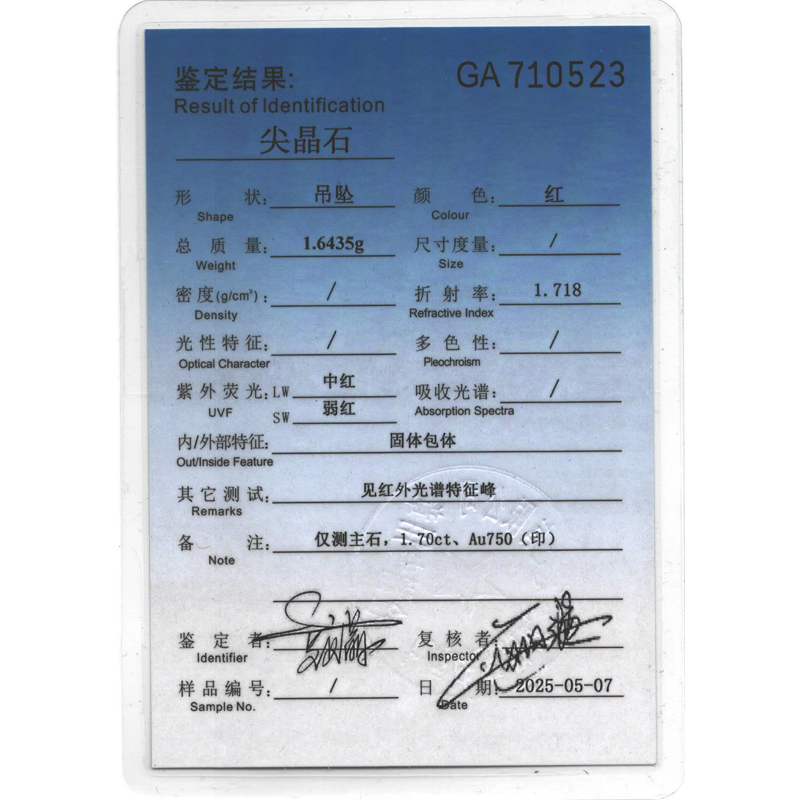 鉴定结果: GA 710523
Result of Identification
尖晶石
形 状: 吊坠 颜 色: 红
Shape Colour
总 质 量: 1.6435g 尺寸度量: /
Weight Size
密 度(g/cm³): / 折 射 率: 1.718
Density Refractive Index
光性特征: / 多 色 性: /
Optical Character Pleochroism
紫外荧光: LW 中红 吸收光谱: /
UVF SW 弱红 Absorption Spectra
内/外部特征: 固体包体
Out/Inside Feature
其它测试: 见红外光谱特征峰
Remarks
备 注: 仅测主石, 1.70ct、Au750（印）
Note
鉴 定 者: 复 核 者:
Identifier Inspector
样品编号: / 日 期: 2025-05-07
Sample No. Date